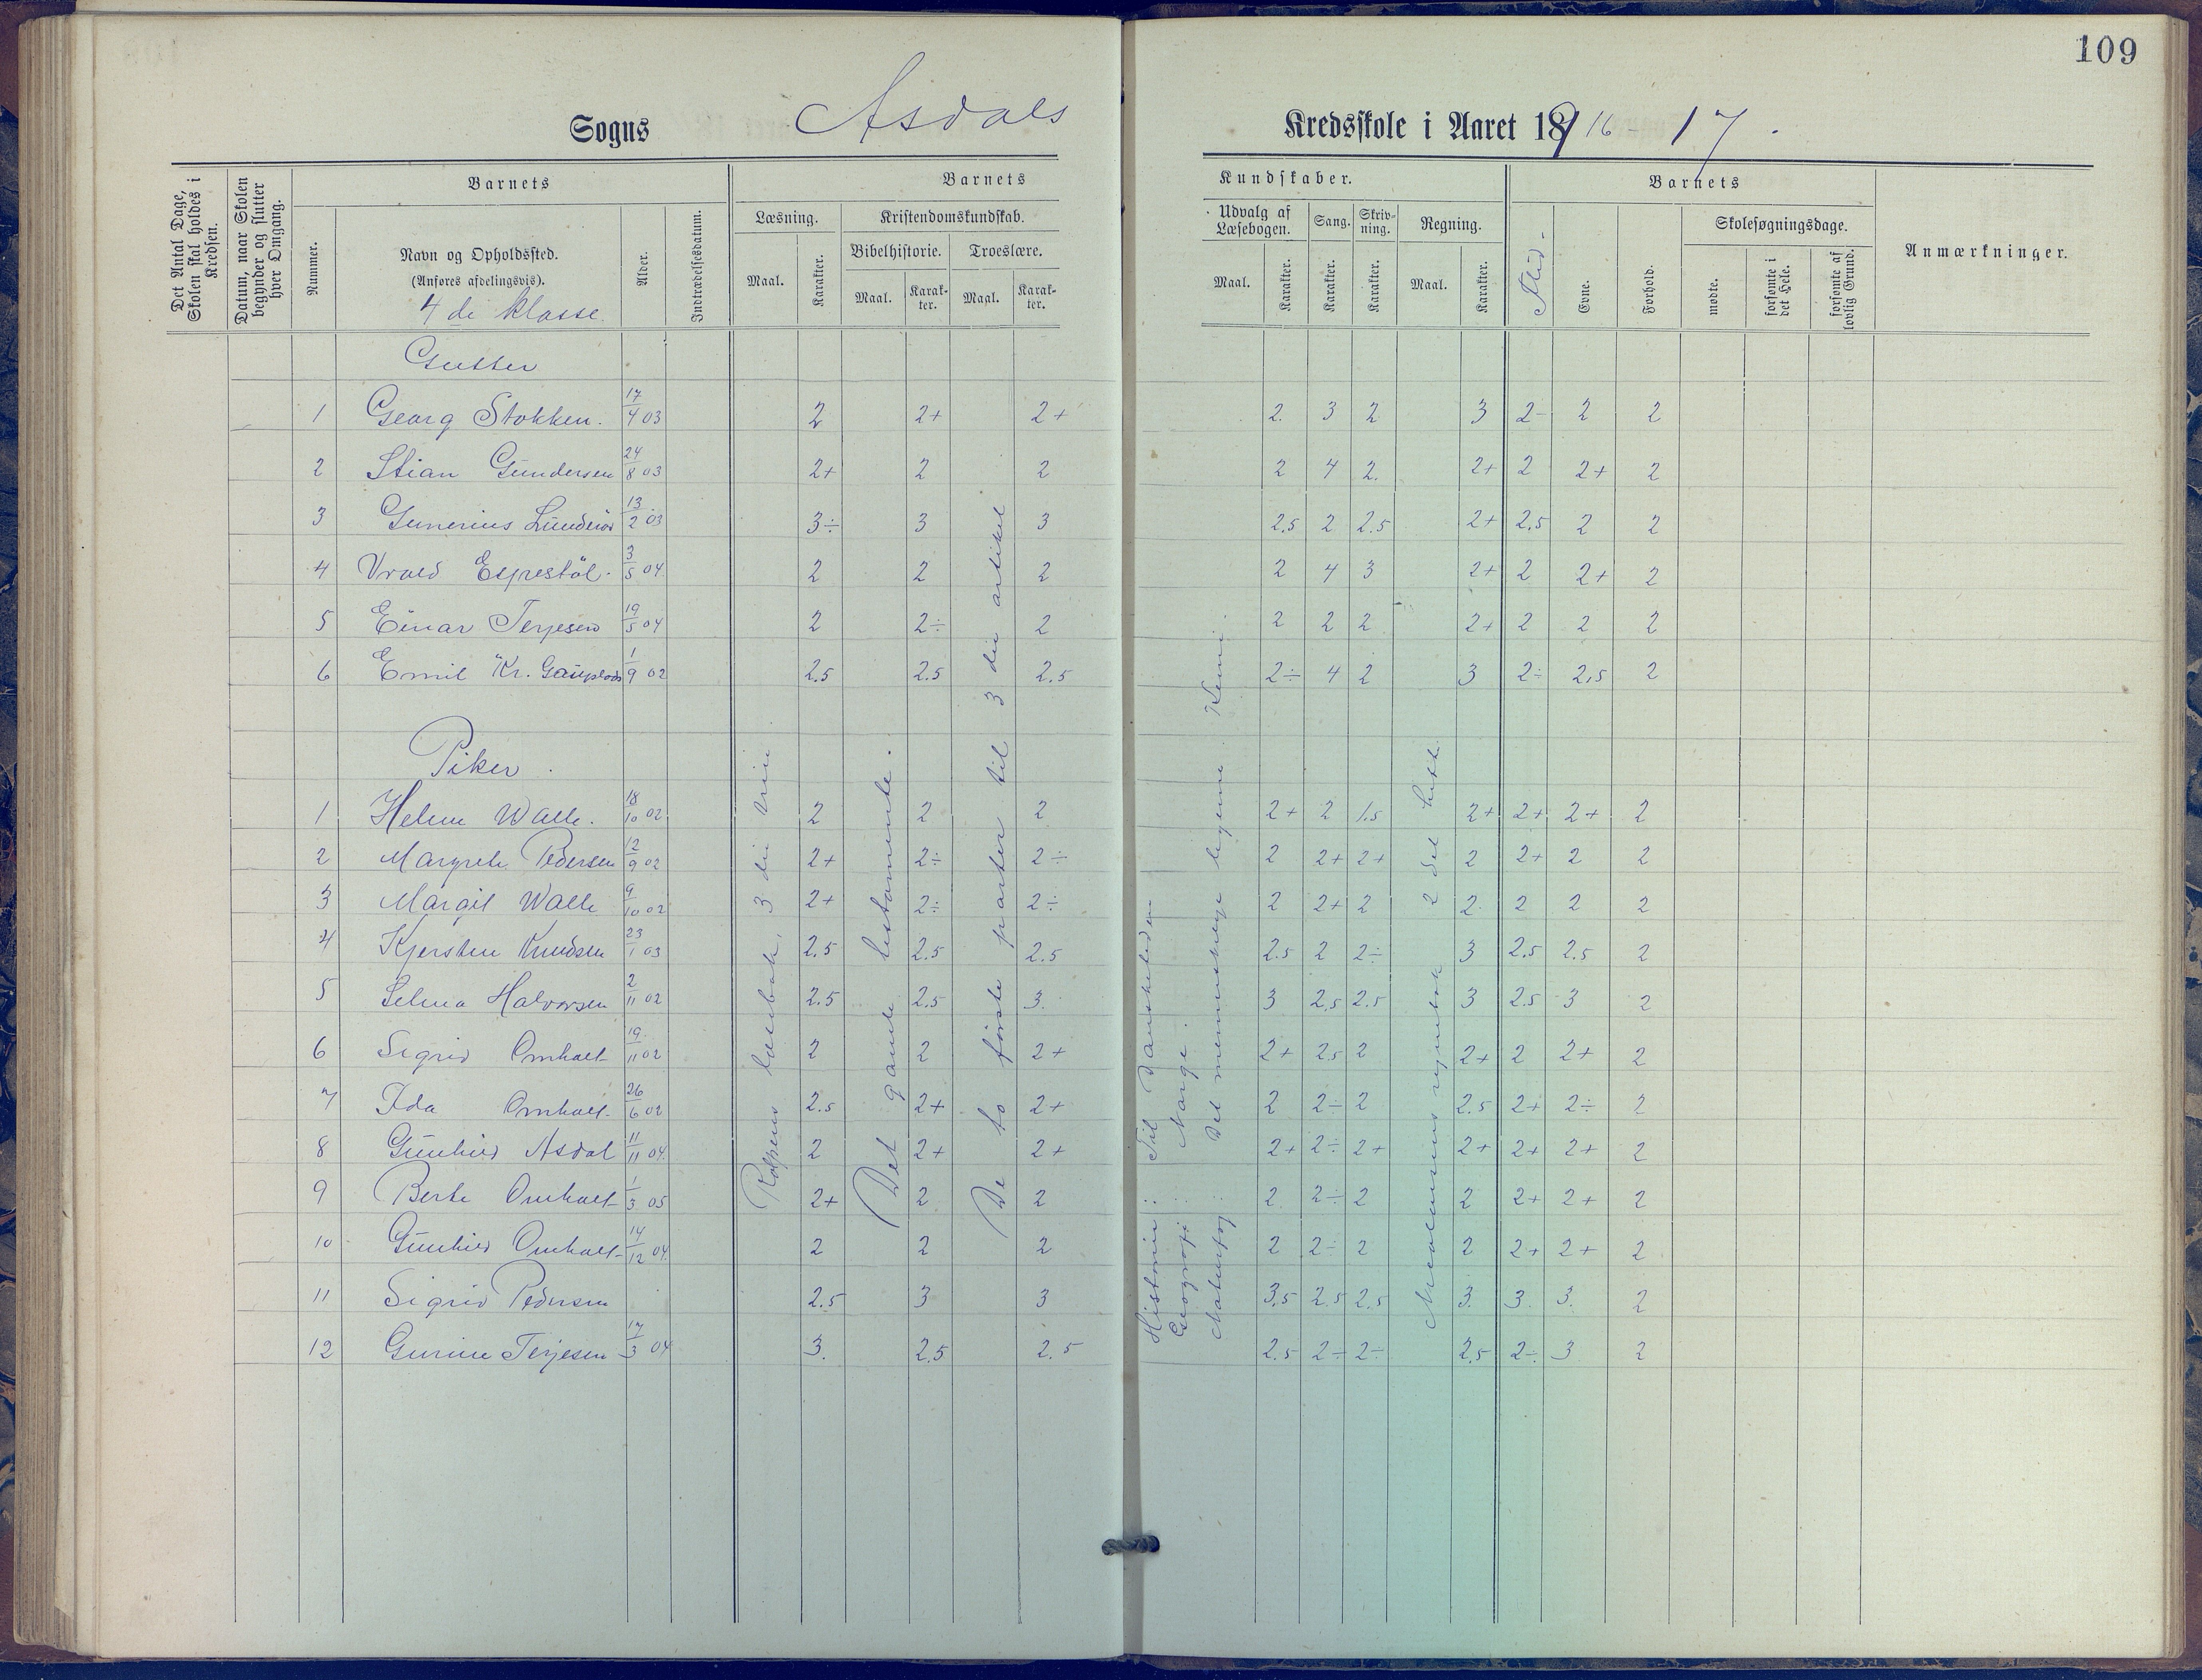 109
Sogns Asdals Kredsskole i Aaret 1916-17.
Det Antal Dage, Skolen skal holdes i Kredsen.
Datum, naar Skolen begynder og slutter hver Omgang.
Barnets
Nummer.
Navn og Opholdssted.
(Anføres afdelingsvis).
4de klasse
Alder.
Indtrædelsesdatum.
Barnets Kundskaber.
Læsning.
Maal.
Karakter.
Kristendomskundskab.
Bibelhistorie.
Maal.
Karakter.
Troeslære.
Maal.
Karakter.
Udvalg af Læsebogen.
Maal.
Karakter.
Sang.
Karakter.
Skrivning.
Karakter.
Regning.
Maal.
Karakter.
Barnets
Flid-
Evne.
Forhold.
Skolesøgningsdage.
mødte.
forsømte i det Hele.
forsømte af lovlig Grund.
Anmærkninger.
Gutter
1 Georg Stokken. 17/4 03 2 2+ 2+ 2. 3 2 3 2- 2 2
2 Stian Gundersen 24/8 03 2+ 2 2 2 4 2. 2+ 2 2+ 2
3 Gunerius 13/2 03 3÷ 3 3 2.5 2 2.5 2+ 2.5 2 2
4 Vrald Espestöl. 3/5 04. 2 2 2 2 4 3 2+ 2 2+ 2
5 Einar Terjesen 19/5 04 2 2÷ 2 2 2 2 2+ 2 2 2
6 Emil Kr. 1/9 02 2.5 2.5 2.5 2÷ 4 2 3 2÷ 2.5 2
Piker.
1 Helene Walle. 18/10 02 2 2 2 2+ 2 1.5 2+ 2+ 2+ 2
2 Margrete Pedersen 12/9 02 2+ 2÷ 2÷ 2 2+ 2+ 2 2+ 2 2
3 Margit Walle 9/10 02 2+ 2÷ 2÷ 2 2+ 2 2. 2 2 2
4 Kjersten Knudsen 23/1 03 2.5 2.5 2.5 2.5 2 2÷ 3 2.5 2.5 2
5 Selma Halvorsen 2/11 02 2.5 2.5 3. 3 2.5 2.5 3 2.5 3 2
6 Sigrid Omholt 19/11 02 2 2 2+ 2+ 2.5 2 2+ 2 2+ 2
7 Ida Omholt 26/6 02 2.5 2+ 2+ 2 2÷ 2 2.5 2+ 2÷ 2
8 Gunhild Asdal 11/11 04. 2 2+ 2+ 2+ 2÷ 2+ 2+ 2+ 2+ 2
9 Berte Omholt 1/3 05 2+ 2 2 2 2÷ 2 2 2+ 2+ 2
10 Gunhild Omholt 14/12 04. 2 2 2 2 2÷ 2 2 2+ 2+ 2
11 Sigrid Pedersen 2.5 3 3 3.5 2.5 2.5 3. 3. 3. 2
12 Gurine Terjesen 17/3 04 3. 2.5 2.5 2.5 2÷ 2÷ 2.5 2÷ 3 2
Rolfsens læsebok, 3die trin
Det gamle testamente.
De to første parter til 3die artikel
Historie: Til Dansketiden
Geografi: Norge.
Naturfag: Det menneskelige legeme.
regnebok 2det hefte.